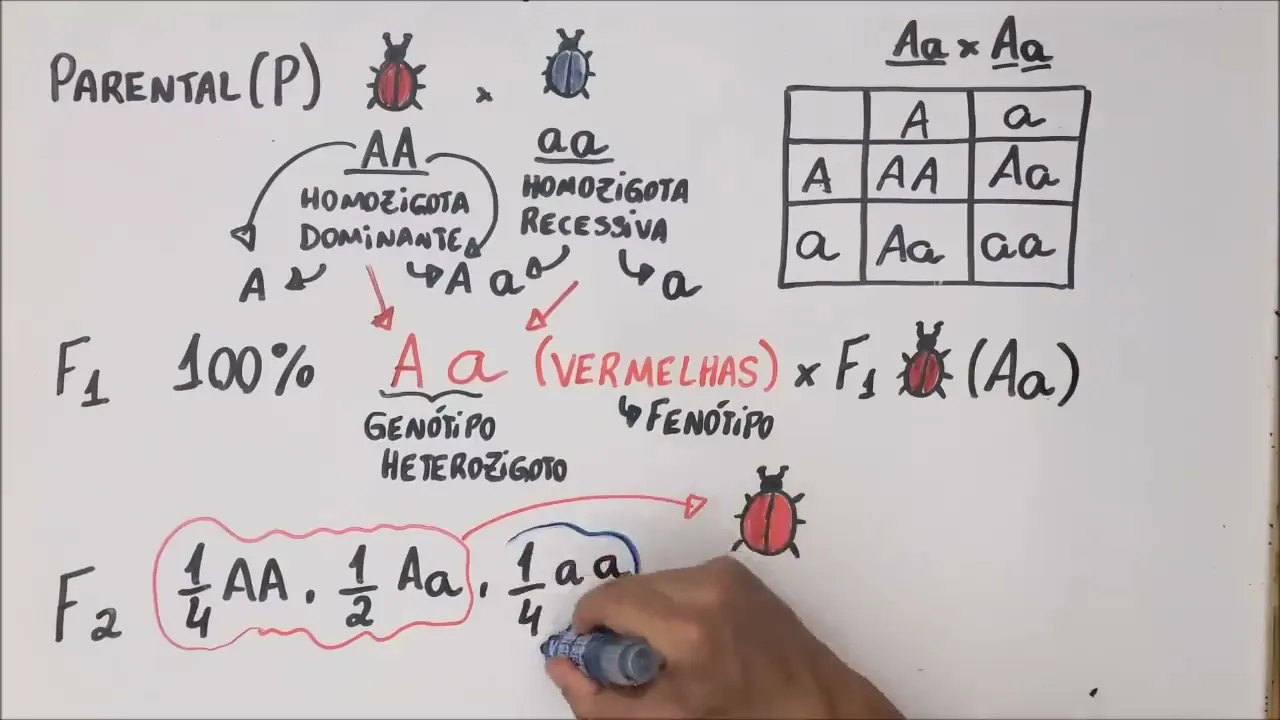 PARENTAL (P) x
AA aa
HOMOZIGOTA DOMINANTE
HOMOZIGOTA RECESSIVA
A A a a
Aa x Aa
A a
A AA Aa
a Aa aa
F1 100% Aa (VERMELHAS) x F1 (Aa)
GENÓTIPO
HETEROZIGOTO
FENÓTIPO
F2 1/4 AA . 1/2 Aa . 1/4 aa